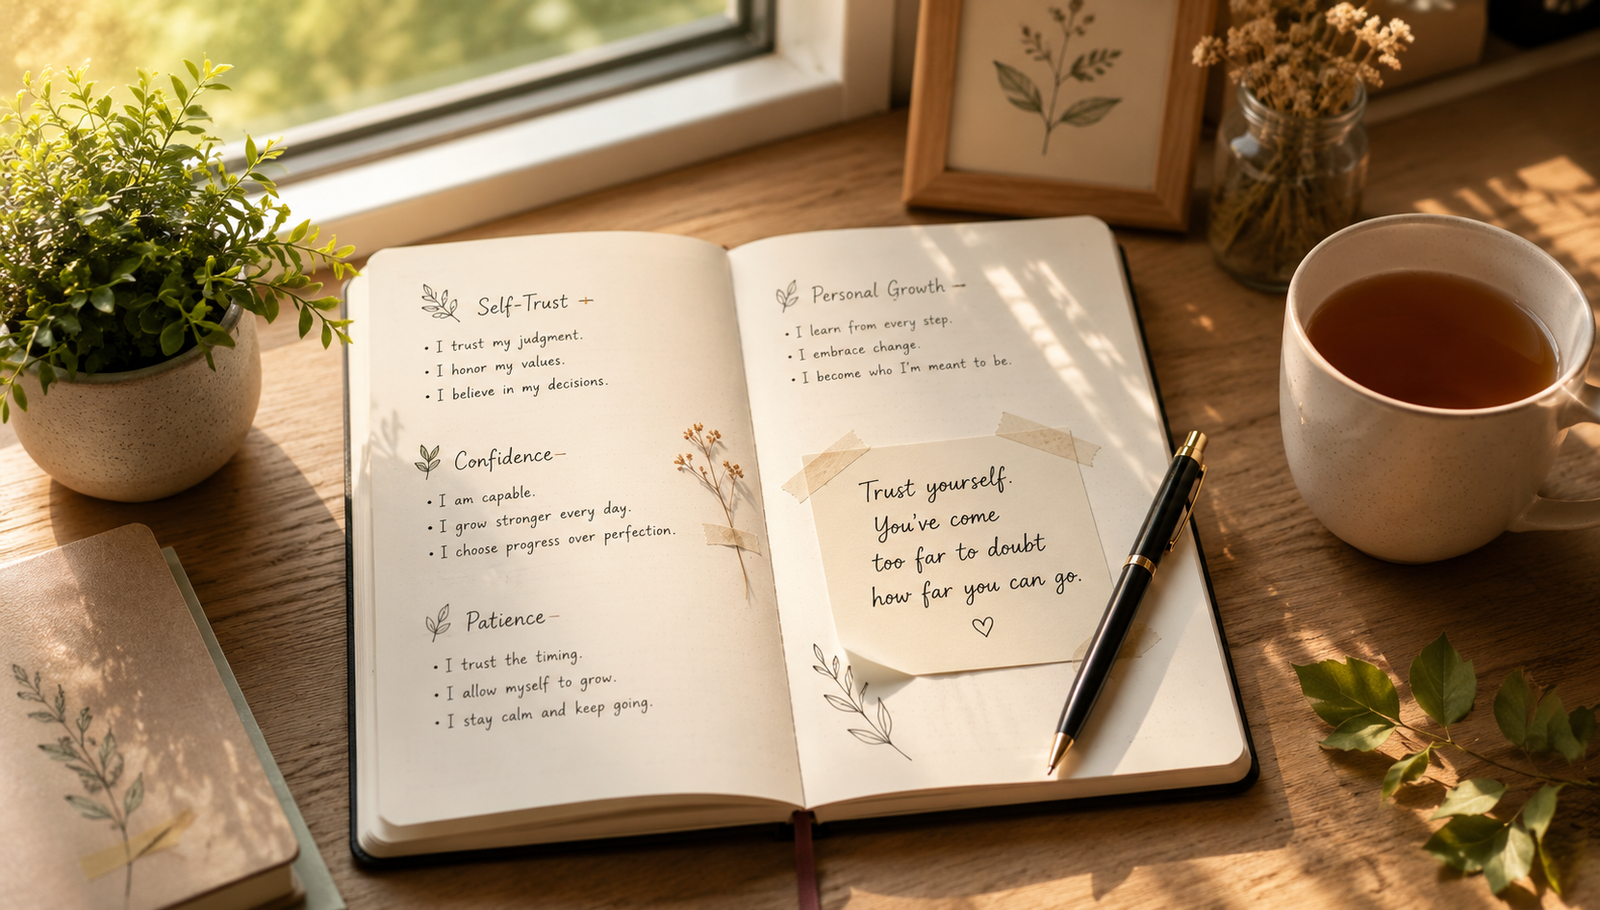 Self-Trust
• I trust my judgment.
• I honor my values.
• I believe in my decisions.
Confidence
• I am capable.
• I grow stronger every day.
• I choose progress over perfection.
Patience
• I trust the timing.
• I allow myself to grow.
• I stay calm and keep going.
Personal Growth
• I learn from every step.
• I embrace change.
• I become who I'm meant to be.
Trust yourself.
You've come
too far to doubt
how far you can go.